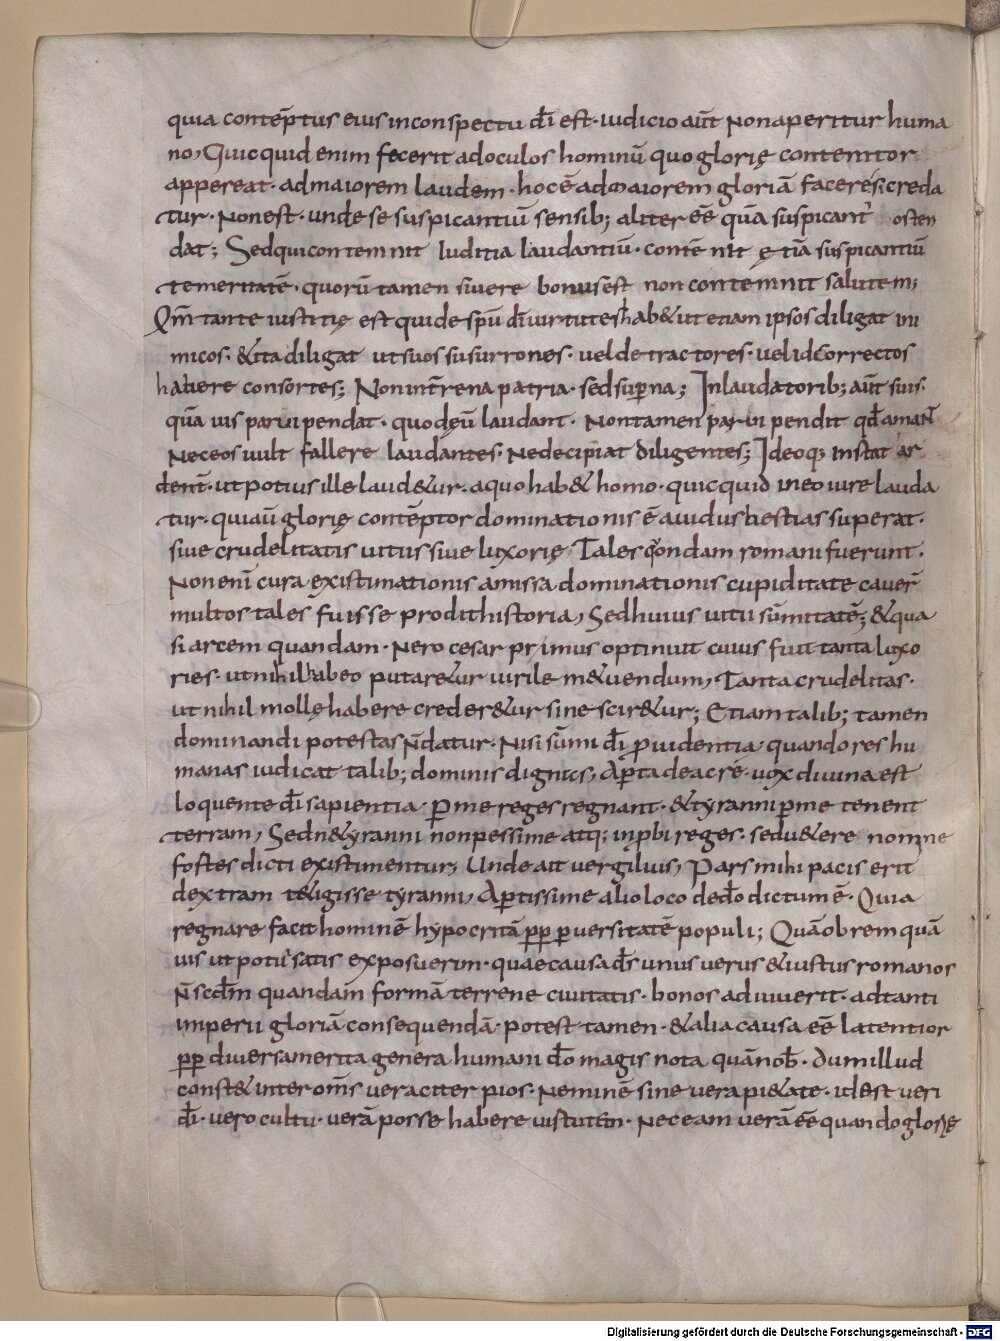 quia contēptus eius inconspectu dī est· iudicio aūt Non aperitur huma
no, Quicquid enim fecerit adoculos hominū quo glorię contemtor
appereat· admaiorem laudem· hoc ē admaiorem gloriā facere si creda
tur· Nonest· unde se suspicantiū sensib; aliter eē quā suspicant᷑ osten
dat; Sedqui contemnit Iuditia laudantiū· contēnit &iā suspicantiū
temeritatē· quorū tamen si uere bonus est non contemnit salutem;
Qm̄ tante iustitię est qui de spū dī uirtutes hab& ut etiam ipsos diligat ini
micos· &ita diligat ut suos susurrones· uel detractores· uelid correctos
habere consortes; Non int̄rena patria· sed sup̄na; In laudatorib; aūt suis·
quā uis parui pendat· quod eū laudant· Nontamen parui pendit qd̄ amaN̄
Nec eos uult fallere laudantes· Ne decipiat diligentes; Ideoq; instat ar
dent̄· ut potius ille laud&ur· aquo hab& homo· quicquid ineo iure lauda
tur· qui aū glorię contēptor dominationis ē auidus bestias superat·
siue crudelitatis uitiis siue luxorię Tales quondam romani fuerunt·
Non enī cura existimationis amissa dominationis cupiditate caruer̄
multos tales fuisse prodit historia, Sed huius uitii sūmitatē; &qua
si arcem quandam· Nero cesar primus optinuit cuius fuit tanta luxo
ries· ut nihil ab eo putar&ur uirile m&uendum, Tanta crudelitas·
ut nihil mollę habere creder&ur sine scir&ur; Etiam talib; tamen
dominandi potestas N̄ datur· Nisi sūmi dī p̄uidentia quando res hu
manas iudicat talib; dominis dignas, Ap̄ta de ac re· uox diuina est
loquente dī sapientia· P̄ me reges regnant· &tyranni p̄ me tenent
terram, Sed n& yranni non pessime atq; inp̄bi reges· sed u&ere nomine
fostes dicti existimentur, Unde ait uergilius, Pars mihi pacis erit
dextram t&igisse tyranni, Ap̄tissime alio loco de dō dictum ē· Quia
regnare facit hominē hypocritā pp̄ p̄uersitatē populi; Quāobrem quā
uis ut potui satis exposuerim· quae causa ds̄ unus uerus &iustus romanos
N̄ scdm̄ quandam formā terrene ciuitatis· bonos adiuuerit· ad tanti
imperii gloriā consequendā· potest tamen· &alia causa eē latentior
pp̄ diuersa merita genera humani dō magis nota quā nob̄· dum illud
const& inter om̄s ueraciter pios· Neminē sine uera pi&ate· id est ueri
dī· uero cultu· uerā posse habere uirtutem· Nec eam uerā eē quando glorię